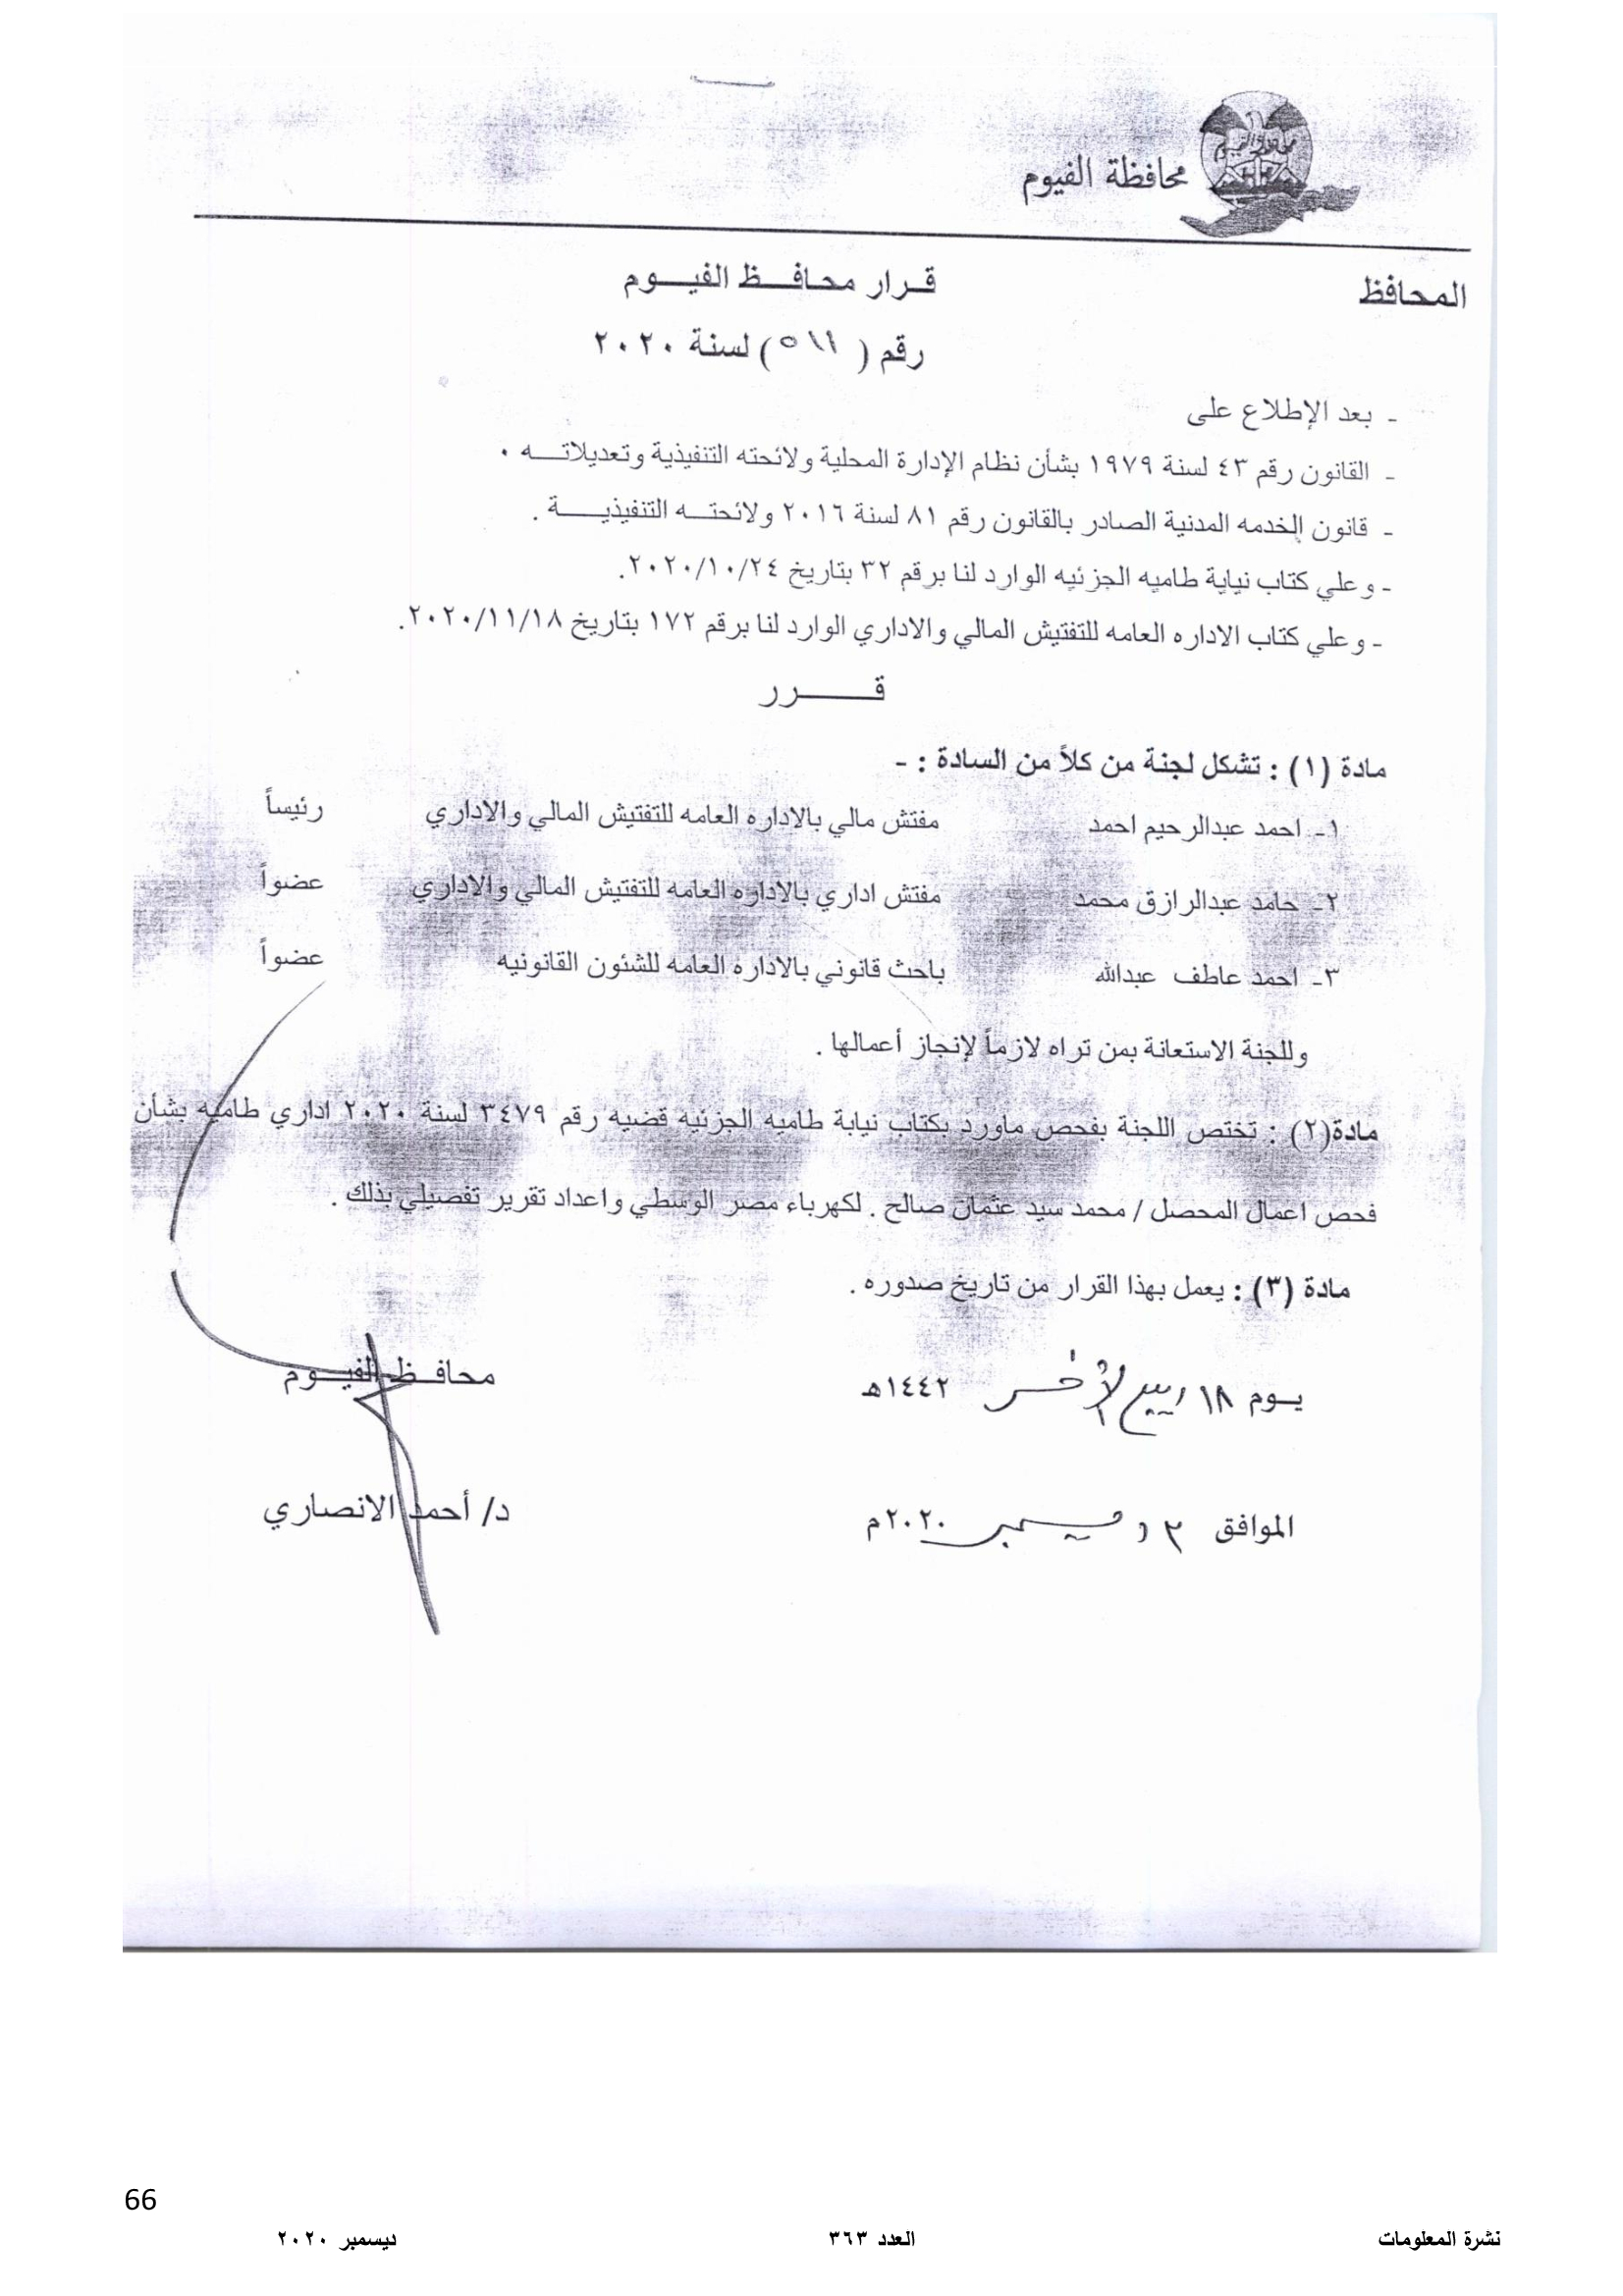 محافظة الفيوم
المحافظ
قـرار محافــظ الفيـــوم
رقم (٥١١) لسنة ٢٠٢٠
- بعد الإطلاع على
- القانون رقم ٤٣ لسنة ١٩٧٩ بشأن نظام الإدارة المحلية ولائحته التنفيذية وتعديلاتـــه ٠
- قانون الخدمه المدنية الصادر بالقانون رقم ٨١ لسنة ٢٠١٦ ولائحتــه التنفيذيـــــة .
- وعلي كتاب نياية طاميه الجزئيه الوارد لنا برقم ٣٢ بتاريخ ٢٠٢٠/١٠/٢٤.
- وعلي كتاب الاداره العامه للتفتيش المالي والاداري الوارد لنا برقم ١٧٢ بتاريخ ٢٠٢٠/١١/١٨.
قـــــــرر
مادة (١) : تشكل لجنة من كلاً من السادة : -
١- احمد عبدالرحيم احمد مفتش مالي بالاداره العامه للتفتيش المالي والاداري رئيساً
٢- حامد عبدالرازق محمد مفتش اداري بالاداره العامه للتفتيش المالي والاداري عضواً
٣- احمد عاطف عبدالله باحث قانوني بالاداره العامه للشئون القانونيه عضواً
وللجنة الاستعانة بمن تراه لازماً لإنجاز أعمالها .
مادة(٢) : تختص اللجنة بفحص ماورد بكتاب نيابة طاميه الجزئيه قضيه رقم ٣٤٧٩ لسنة ٢٠٢٠ اداري طاميه بشأن
فحص اعمال المحصل / محمد سيد عثمان صالح . لكهرباء مصر الوسطي واعداد تقرير تفصيلي بذلك .
مادة (٣) : يعمل بهذا القرار من تاريخ صدوره .
يــوم ١٨ ربيع الآخر ١٤٤٢هـ
محافــظ الفيـــوم
الموافق ٢ ديسمبر ٢٠٢٠م
د/ أحمد الانصاري
66
نشرة المعلومات العدد ٣٦٣ ديسمبر ٢٠٢٠